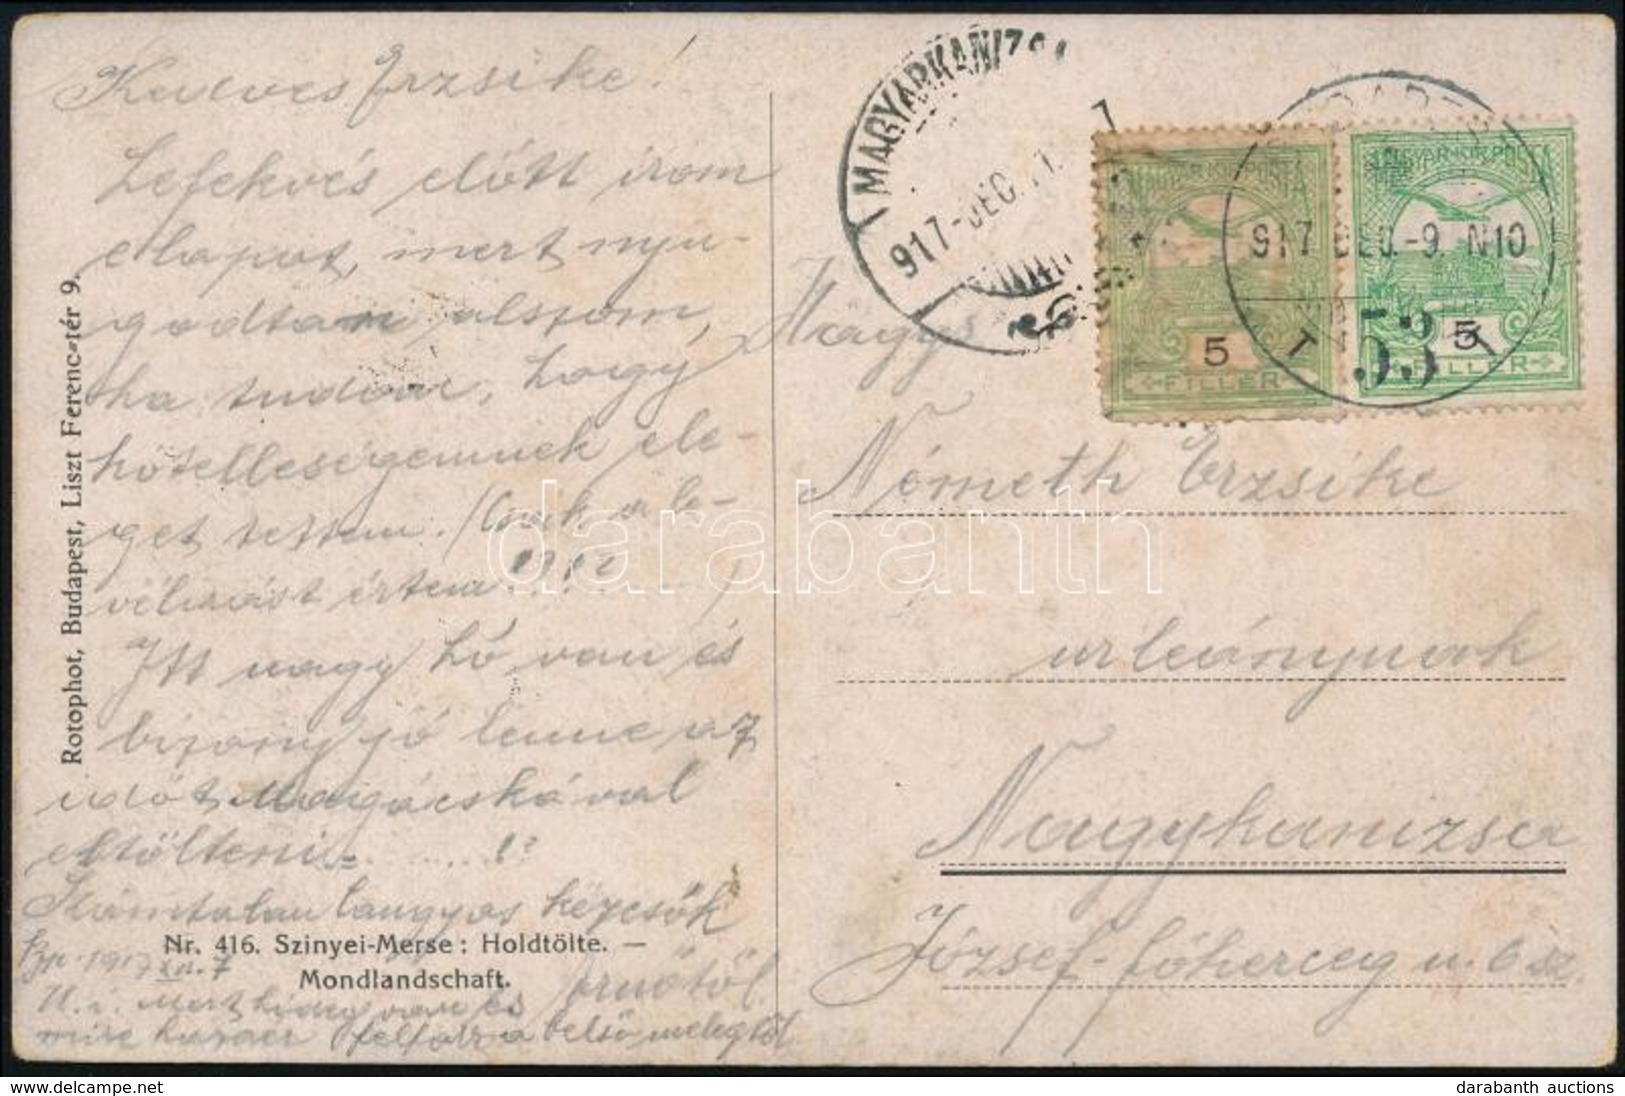 Kedves Erzsike!
Lefekvés előtt irom
e lapot, mert nyu-
godtan alszom,
ha tudom, hogy
kötelességemnek ele-
get tettem. (Csak a le-
vélirást értem!?!?
Itt nagy hó van és
bizony jó lenne az
időt Magácskával
eltölteni. ......!?
Számtalan langyos kézcsók
Ernőtől.
Bp. 1917 XII. 7
U. i. Mert hideg van és
mire haza ér felfalz a belső melegtől
Rotophot, Budapest, Liszt Ferenc-tér 9.
Nr. 416. Szinyei-Merse: Holdtölte. —
Mondlandschaft.
MAGYARKANIZSA
917-DEC. 11.
MAGYAR KIR. POSTA
5
FILLÉR
MAGYAR KIR. POSTA
5
FILLÉR
BUDAPEST
917 DEC.-9. N10
53
Nagys
Németh Erzsike
urleánynak
Nagykanizsa
József-főherceg u. 6 sz.
darabanth
delcampe.net
darabanth auctions